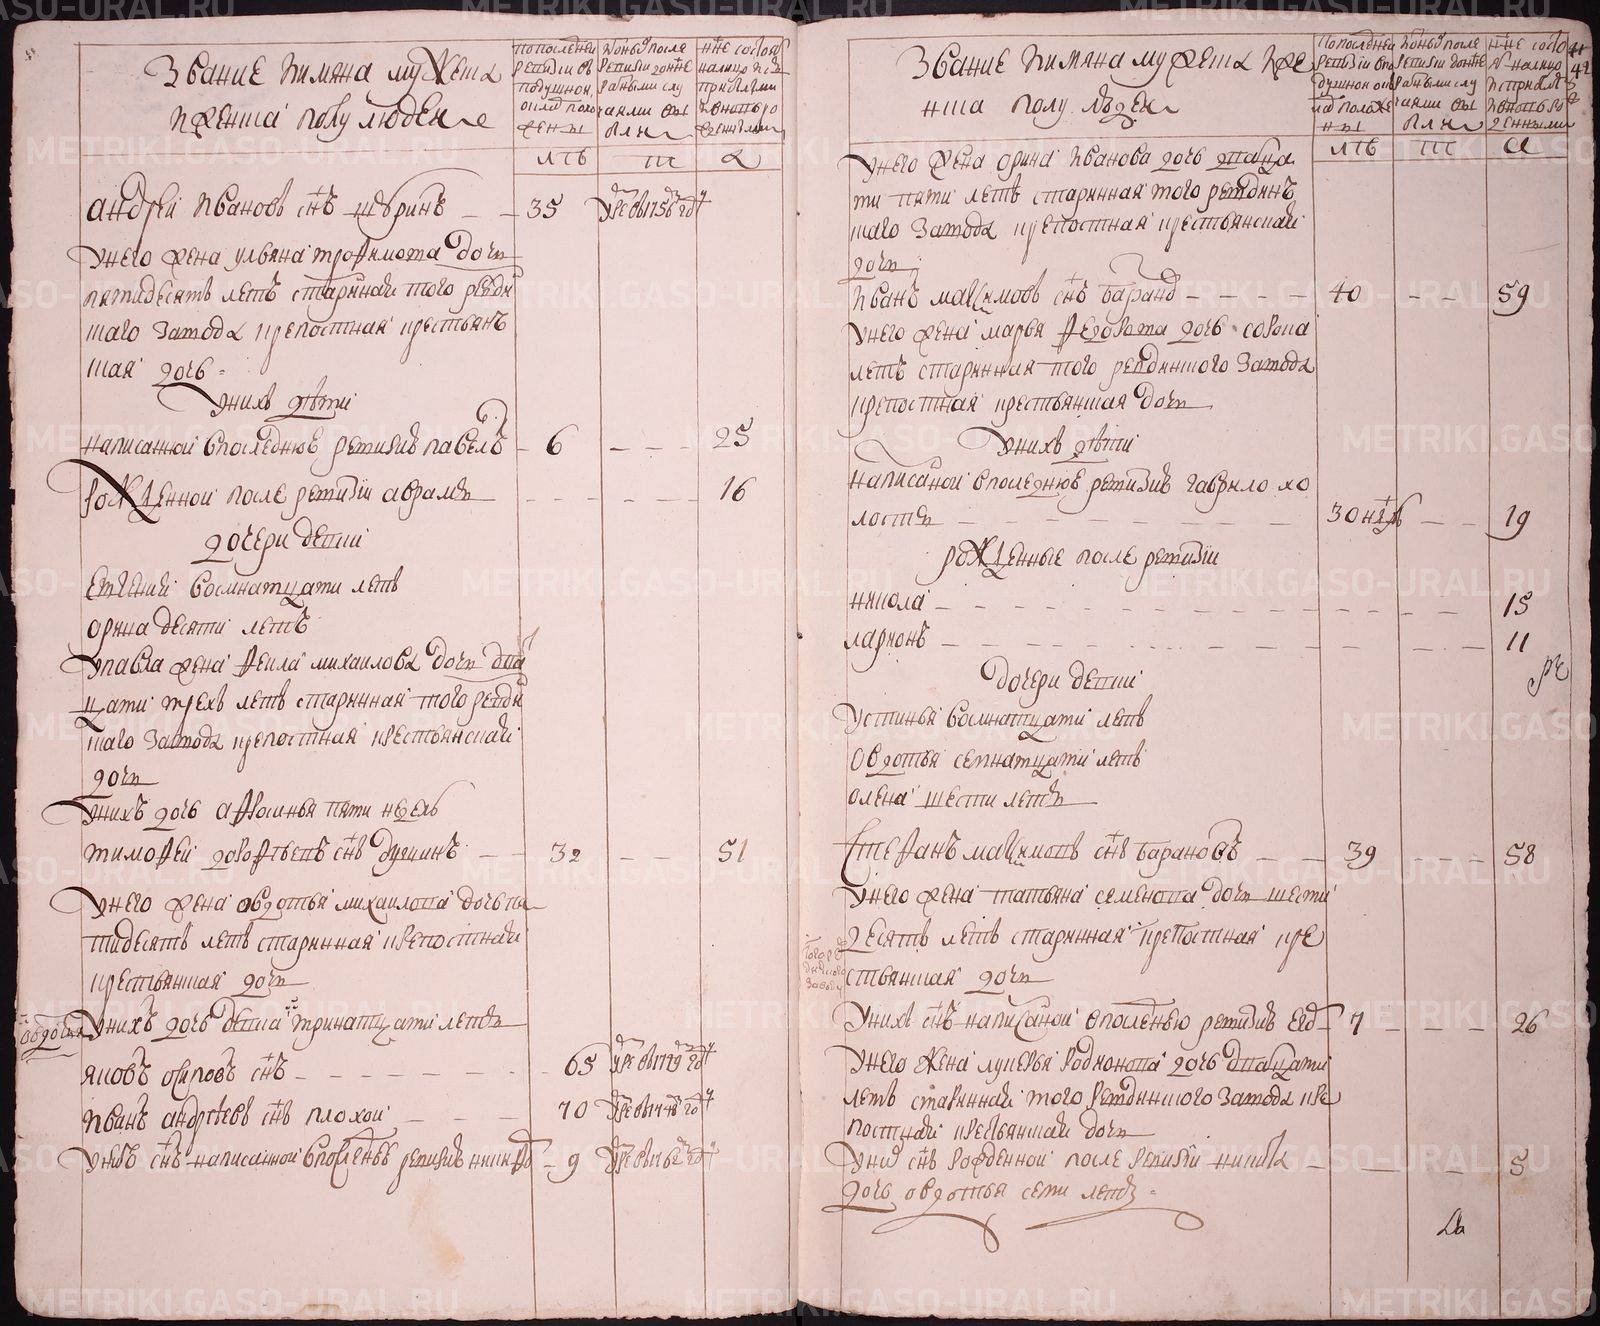 Звание имяна мужеска
и женска полу людем
по последней ревизии в подушной оклад положенны
ис оных после ревизии до ныне разными случаями выбыли
ныне состоят на лицо и с прибылыми и вновь рожденными
лет
лета
Андрей Иванов снъ
35
умре в 1756 году
у него жена Ульяна Трофимова дочь
пятидесятъ летъ стариннай того ревди
нскаго завода крепостная крестьян
ская дочь
у них дети
написанной в последнюю ревизию Павелъ
6
25
рожденной после ревизии Аврамъ
16
дочери девки
Евгения восмнатцати летъ
Орина десяти летъ
у Павла жена Фекла Михайлова дочь два
тцати трехъ летъ старинная того ревди
нскаго завода крепостная крестьянская
дочь
у нихъ дочь Афросинья пяти недель
Тимофей Дорофеевъ снъ
32
51
у него жена Овдотья Михайлова дочь пя
тидесятъ летъ старинная крепостная
крестьянская дочь
у нихъ дочь девка тринатцати летъ
Овдотья
Яковъ Осиповъ снъ
65
умре в 1749 году
Иванъ Андреевъ снъ Плохой
70
умре в году
у нево снъ написанной в последнюю ревизию Никифоръ
9
умре в 1762 году
Звание имяна мужеска и же
нска полу людем
по последней ревизии в подушной оклад положенны
ис оных после ревизии до ныне разными случаями выбыли
ныне состоят на лицо и с прибылыми и вновь рожденными
41
42
у него жена Орина Иванова дочь тритца
ти пяти летъ старинная того ревдин
скаго завода крепостная крестьянская
дочь
Иванъ Максимовъ снъ Баранов
40
59
у него жена Марья Федорова дочь сорока
летъ старинная того ревдинскаго завода
крепостная крестьянская дочь
у нихъ дети
написаной в последнюю ревизию Гаврило хо
лостъ
19
рожденные после ревизии
Никола
15
Ларионъ
11
дочери девки
Устинья восмнатцати летъ
Овдотья семнатцати летъ
Олена шести летъ
Степанъ Максимовъ снъ Барановъ
39
58
у него жена Татьяна Семенова дочь шести
десятъ летъ старинная крепостная кре
стьянская дочь
того ревдинского заводу
у нихъ снъ написаной в последнюю ревизию
7
26
у него жена Лукерья Родионова дочь дватцати
летъ стариннай того ревдинского завода кре
постнай крестьянскай дочь
у них снъ рожденной после ревизии Никита
5
дочь Овдотья семи летъ